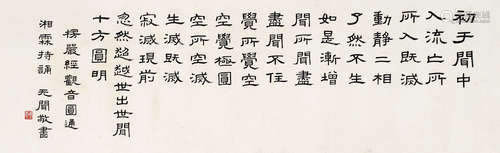 初于聞中
入流亡所
所入既滅
動靜二相
了然不生
如是漸增
聞所聞盡
盡聞不住
覺所覺空
空覺極圓
空所空滅
生滅既滅
寂滅現前
忽然超越世出世間
十方圓明
楞嚴經觀音圓通
湘霖持誦 无聞敬書